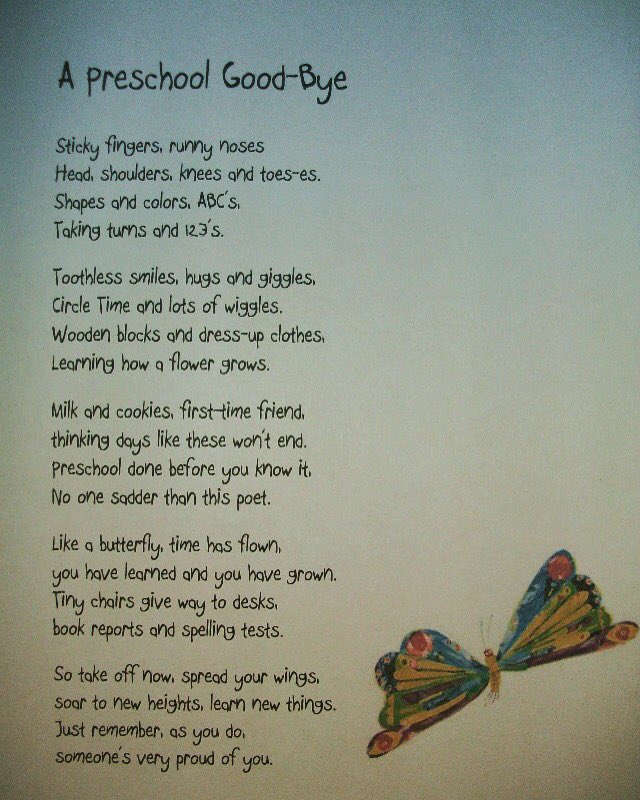 A Preschool Good-Bye
Sticky fingers, runny noses
Head, shoulders, knees and toes-es.
Shapes and colors, ABC's,
Taking turns and 123's.
Toothless smiles, hugs and giggles,
Circle Time and lots of wiggles.
Wooden blocks and dress-up clothes,
Learning how a flower grows.
Milk and cookies, first-time friend,
thinking days like these won't end.
Preschool done before you know it,
No one sadder than this poet.
Like a butterfly, time has flown,
you have learned and you have grown.
Tiny chairs give way to desks,
book reports and spelling tests.
So take off now, spread your wings,
soar to new heights, learn new things.
Just remember, as you do,
someone's very proud of you.